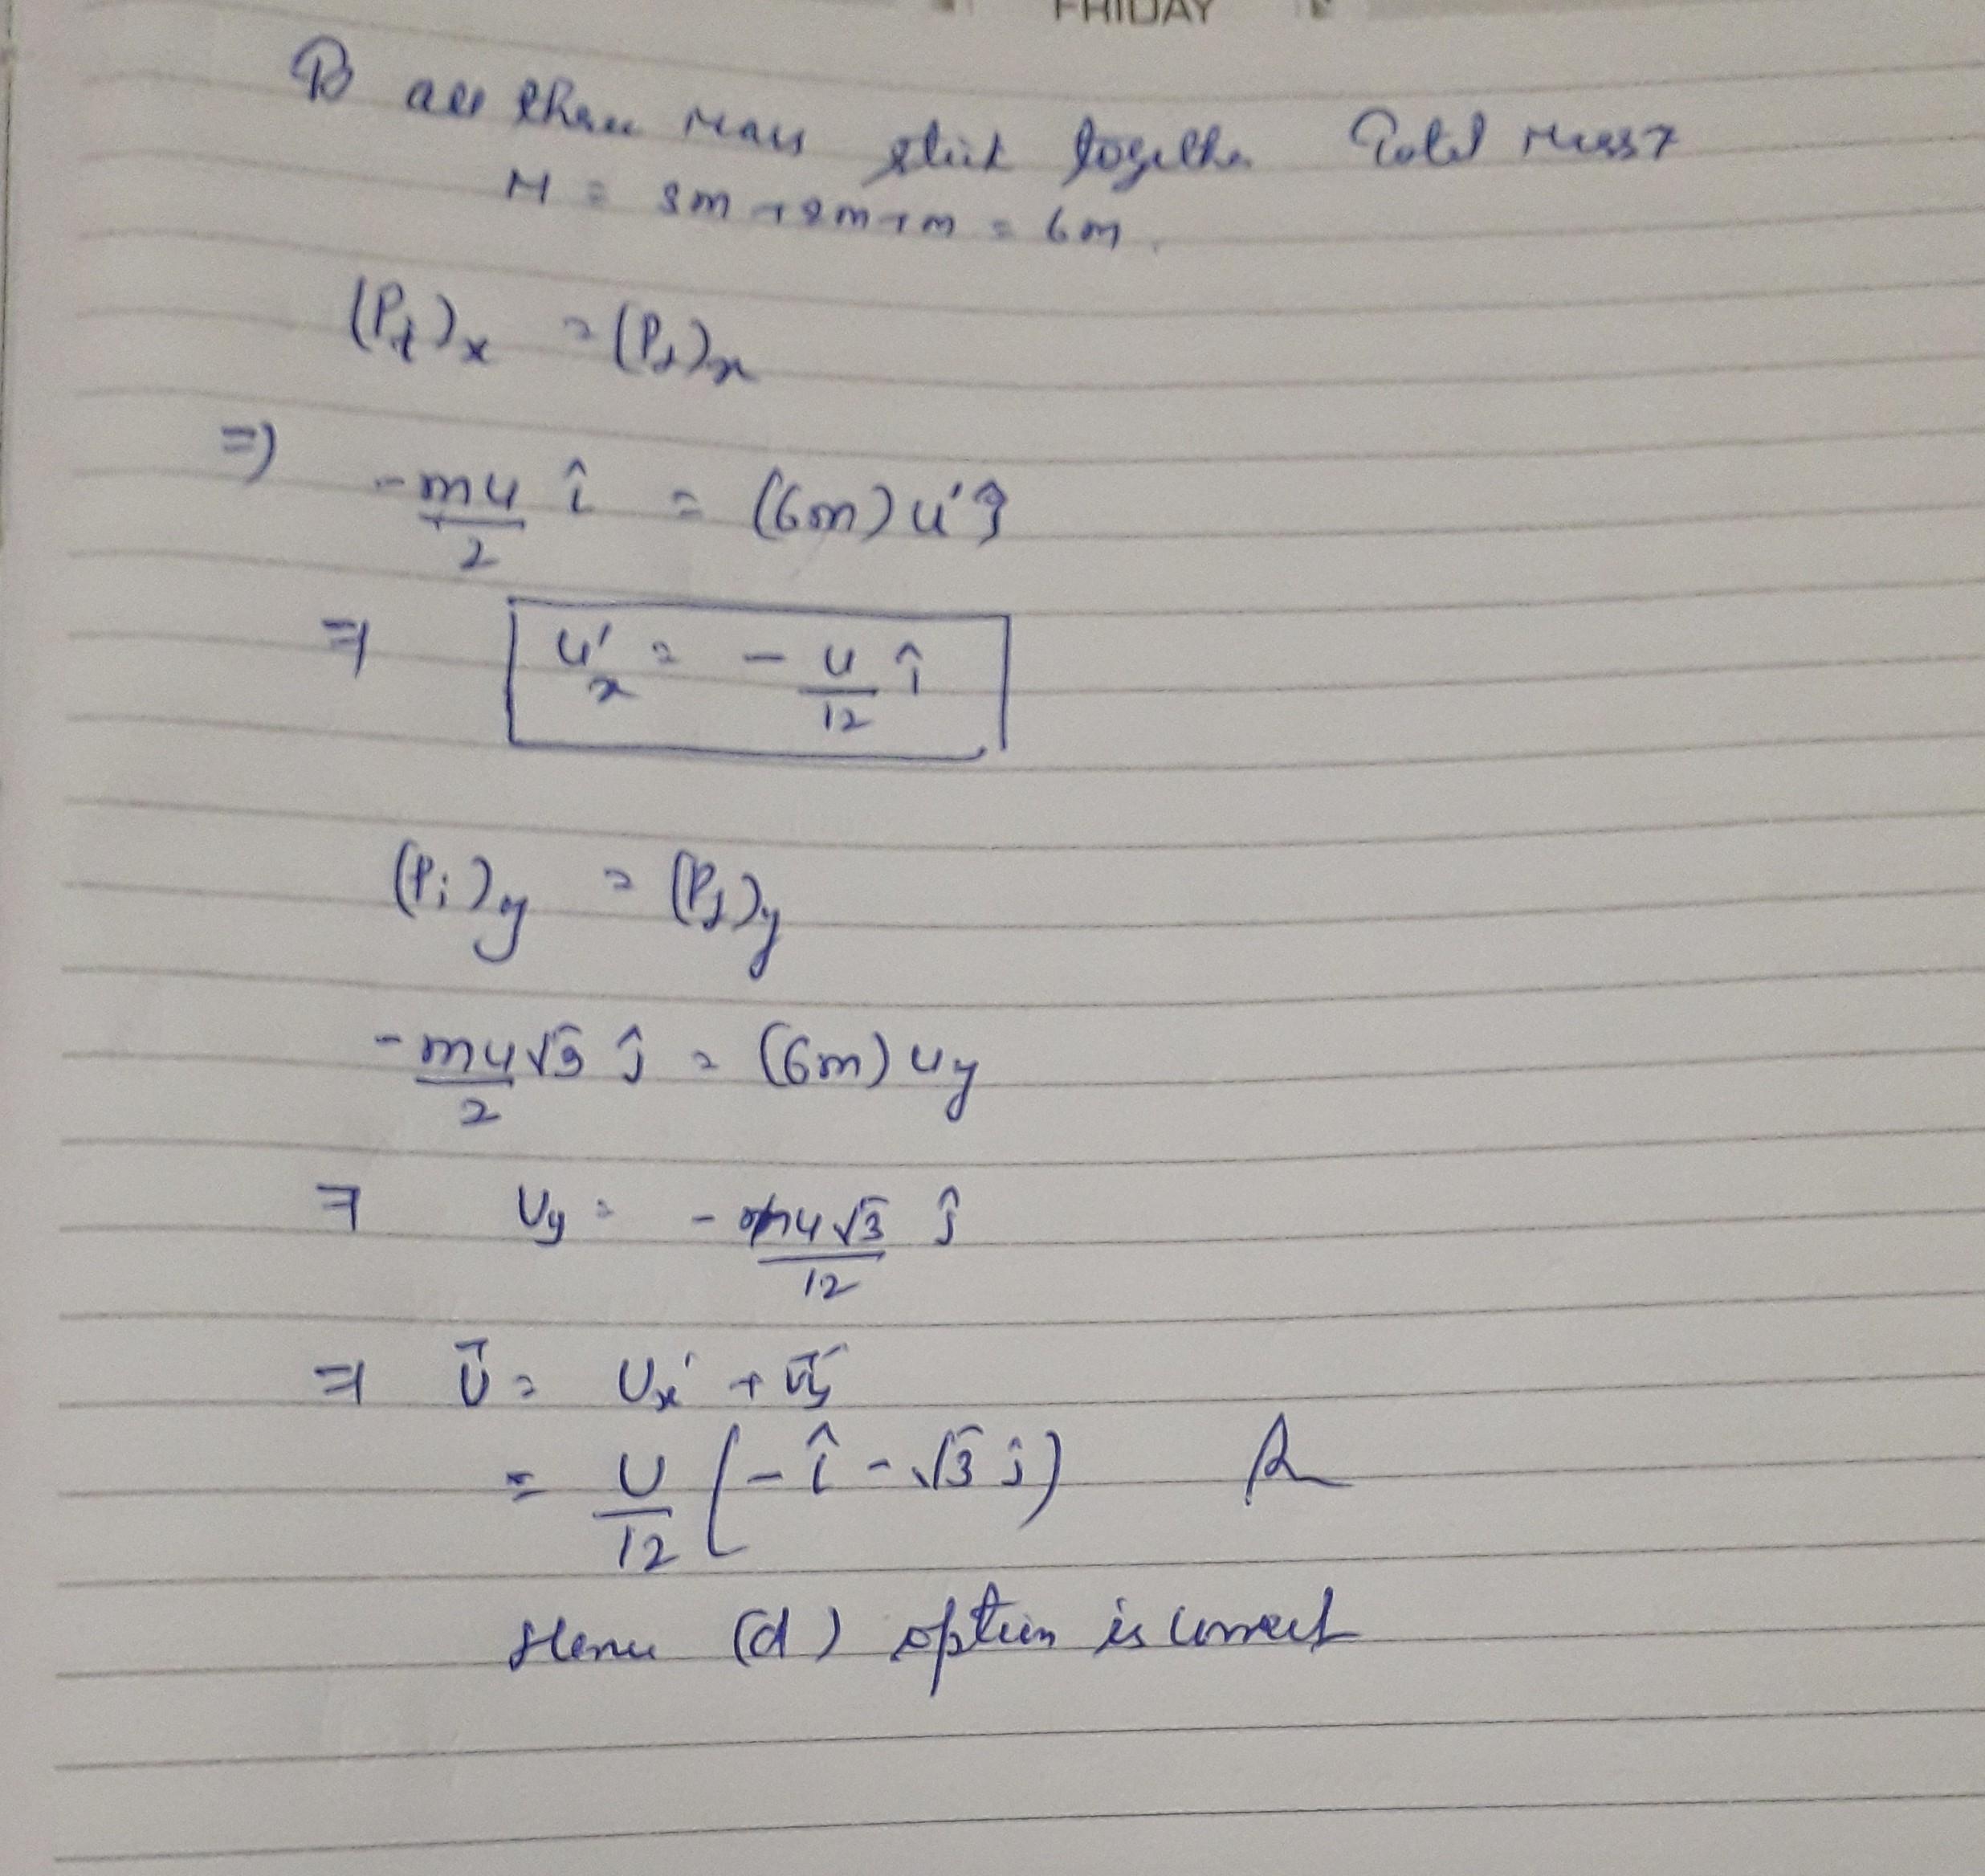 FRIDAY
all three mass stick together Total mass
M = 3m + 2m + m = 6m
(Pi)x = (Pf)x
⇒ -mu/2 î = (6m) u'
⇒ u'x = - u/12 î
(Pi)y = (Pf)y
-mu√3/2 ĵ = (6m) uy
⇒ Uy = - mu√3/12 ĵ
⇒ U = Ux' + Uy
= U/12 (-î - √3 ĵ)
Hence (d) option is correct